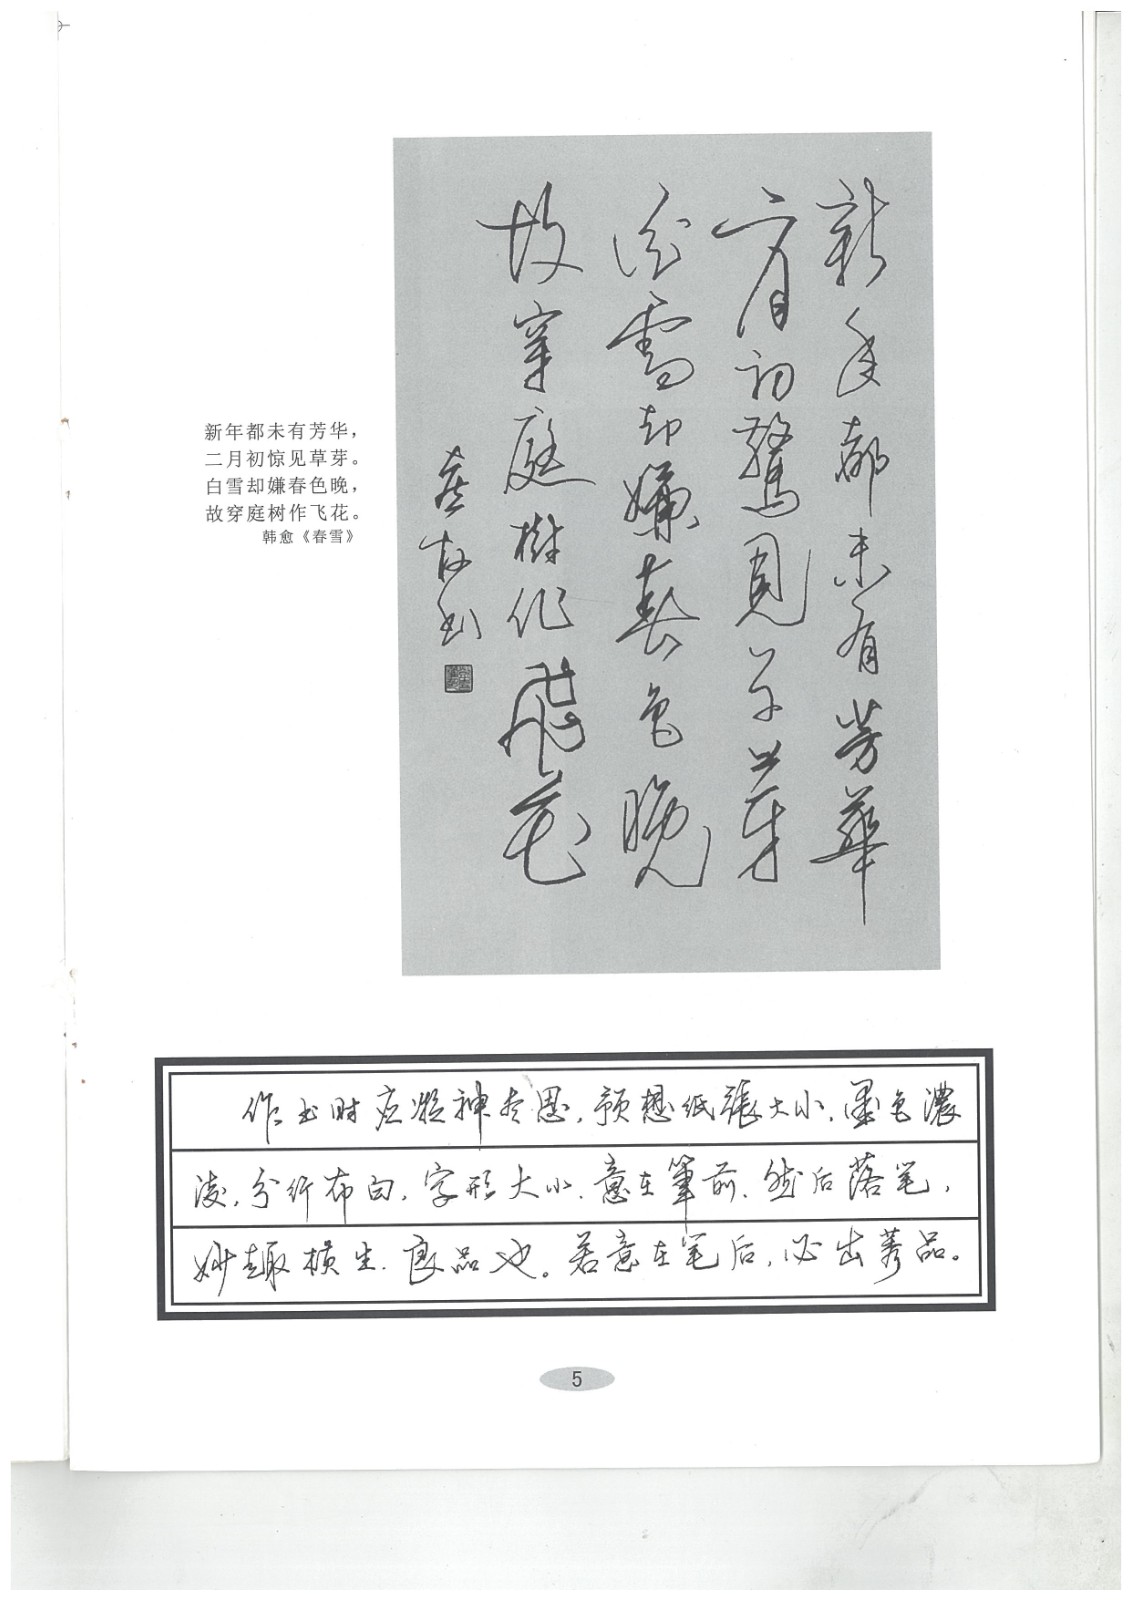 新年都未有芳华，
二月初惊见草芽。
白雪却嫌春色晚，
故穿庭树作飞花。
韩愈《春雪》
新年都未有芳華
二月初驚見草芽
白雪却嫌春色晚
故穿庭樹作飛花
书
作书时应凝神尽思，预想纸張大小、墨色濃
淡，分行布白，字形大小、意在筆前、然后落笔，
妙趣横生、良品也。若意在笔后，必出莠品。
5